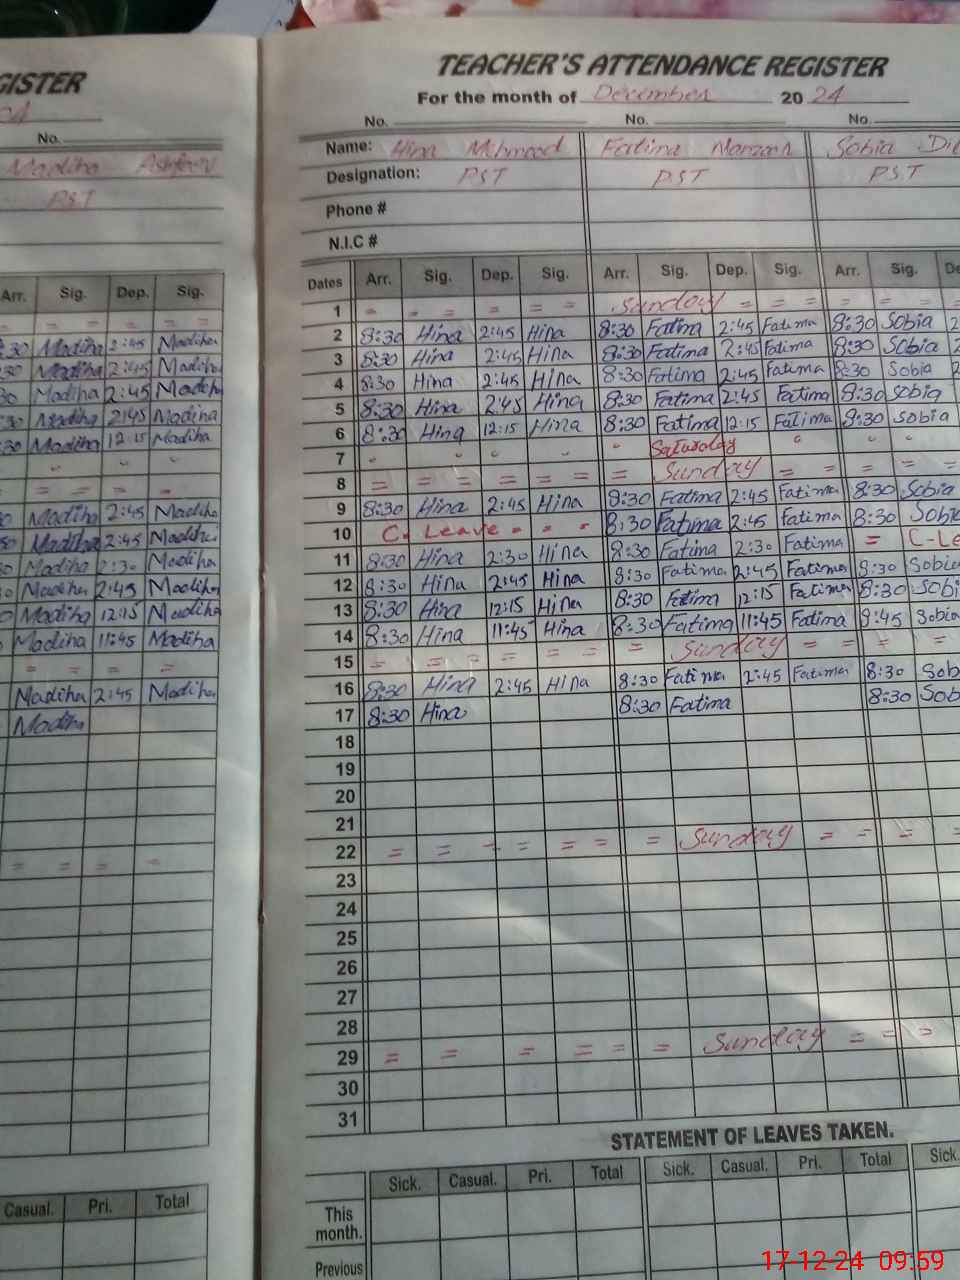 GISTER
No.
Madiha
P.S.T
Arr. Sig. Dep. Sig.
= = = =
:30 Madiha 2:45 Madiha
:30 Madiha 2:45 Madiha
30 Madiha 2:45 Madiha
:30 Madiha 2:45 Madiha
:30 Madiha 12:15 Madiha
= = = =
Madiha 2:45 Madiha
Madiha 2:45 Madiha
Madiha 2:30 Madiha
Madiha 2:45 Madiha
Madiha 12:15 Madiha
Madiha 11:45 Madiha
= = = =
Madiha 2:45 Madiha
Madiha
= = = =
Casual. Pri. Total
TEACHER'S ATTENDANCE REGISTER
For the month of December 2024
No. No. No.
Name: Hina Mehmood Fatima Sobia
Designation: P.S.T P.S.T P.S.T
Phone #
N.I.C #
Dates Arr. Sig. Dep. Sig. Arr. Sig. Dep. Sig. Arr. Sig. De
1 = = = = = Sunday = = = = = =
2 8:30 Hina 2:45 Hina 8:30 Fatima 2:45 Fatima 8:30 Sobia 2
3 8:30 Hina 2:45 Hina 8:30 Fatima 2:45 Fatima 8:30 Sobia 2
4 8:30 Hina 2:45 Hina 8:30 Fatima 2:45 Fatima 8:30 Sobia 2
5 8:30 Hina 2:45 Hina 8:30 Fatima 2:45 Fatima 8:30 Sobia
6 8:30 Hina 12:15 Hina 8:30 Fatima 12:15 Fatima 8:30 Sobia
7 " " " " " Saturday " " "
8 = = = = = = Sunday = = = = =
9 8:30 Hina 2:45 Hina 8:30 Fatima 2:45 Fatima 8:30 Sobia
10 C. Leave - - - 8:30 Fatima 2:45 Fatima 8:30 Sobia
11 8:30 Hina 2:30 Hina 8:30 Fatima 2:30 Fatima = C-Le
12 8:30 Hina 2:45 Hina 8:30 Fatima 2:45 Fatima 8:30 Sobia
13 8:30 Hina 12:15 Hina 8:30 Fatima 12:15 Fatima 8:30 Sobia
14 8:30 Hina 11:45 Hina 8:30 Fatima 11:45 Fatima 9:45 Sobia
15 = = = = = = = Sunday = = = = =
16 8:30 Hina 2:45 Hina 8:30 Fatima 2:45 Fatima 8:30 Sob
17 8:30 Hina 8:30 Fatima 8:30 Sob
18
19
20
21
22 = = = = = = = Sunday = = = =
23
24
25
26
27
28
29 = = = = = = Sunday = = =
30
31
STATEMENT OF LEAVES TAKEN.
Sick. Casual. Pri. Total Sick. Casual. Pri. Total Sick.
This month.
Previous
17-12-24 09:59